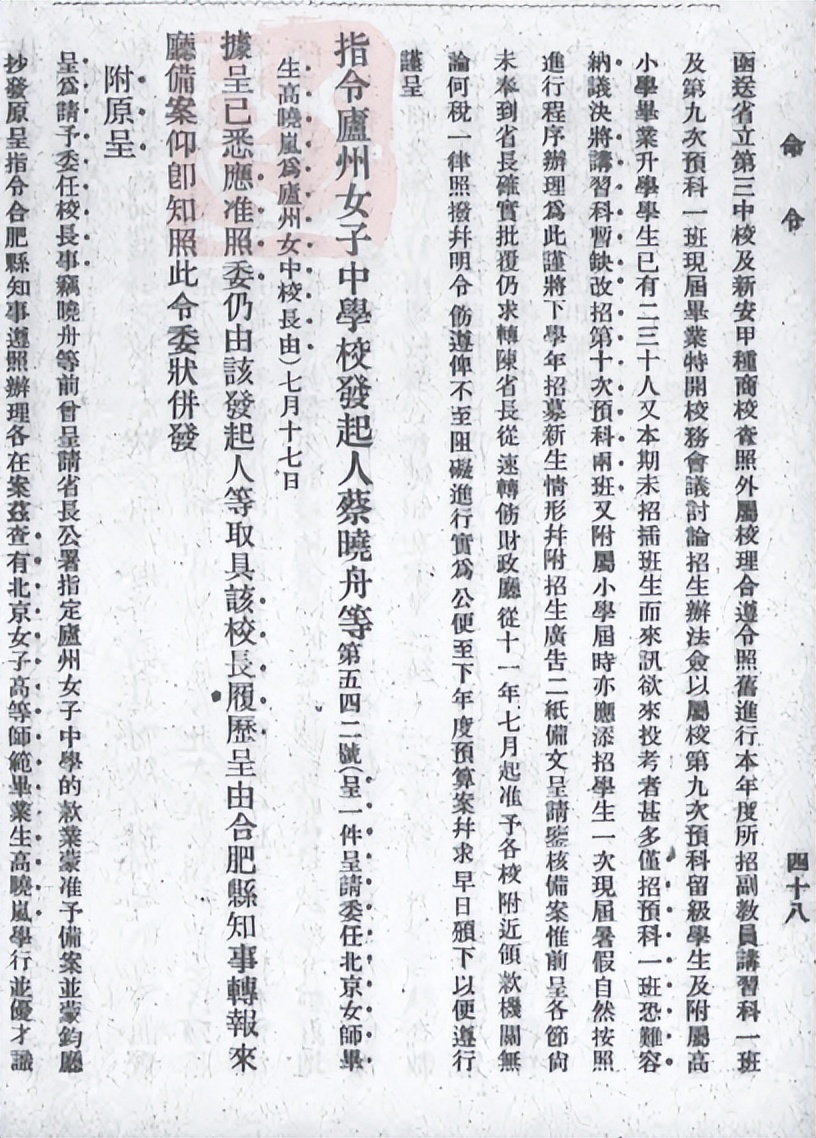 命令
四十八
函送省立第三中校及新安甲種商校查照外屬校理合遵令照舊進行本年度所招副教員講習科一班
及第九次預科一班現屆畢業特開校務會議討論招生辦法僉以屬校第九次預科留級學生及附屬高
小學畢業升學學生已有二三十人又本期未招插班生而來訊欲來投考者甚多僅招預科一班恐難容
納議決將講習科暫缺改招第十次預科兩班又附屬小學屆時亦應添招學生一次現屆暑假自然按照
進行程序辦理爲此謹將下學年招募新生情形幷附招生廣告二紙備文呈請鑒核備案惟前呈各節尙
未奉到省長確實批覆仍求轉陳省長從速轉飭財政廳從十一年七月起准予各校附近領款機關無
論何稅一律照撥幷明令飭遵俾不至阻礙進行實爲公便至下年度預算案幷求早日頒下以便遵行
謹呈
指令廬州女子中學校發起人蔡曉舟等第五四二號(呈一件呈請委任北京女師畢
生高曉嵐爲廬州女中校長由)七月十七日
據呈已悉應准照委仍由該發起人等取具該校長履歷呈由合肥縣知事轉報來
廳備案仰卽知照此令委狀併發
附原呈
呈爲請予委任校長事竊曉舟等前曾呈請省長公署指定廬州女子中學的款業蒙准予備案並蒙鈞廳
抄發原呈指令合肥縣知事遵照辦理各在案茲查有北京女子高等師範畢業生高曉嵐學行並優才識